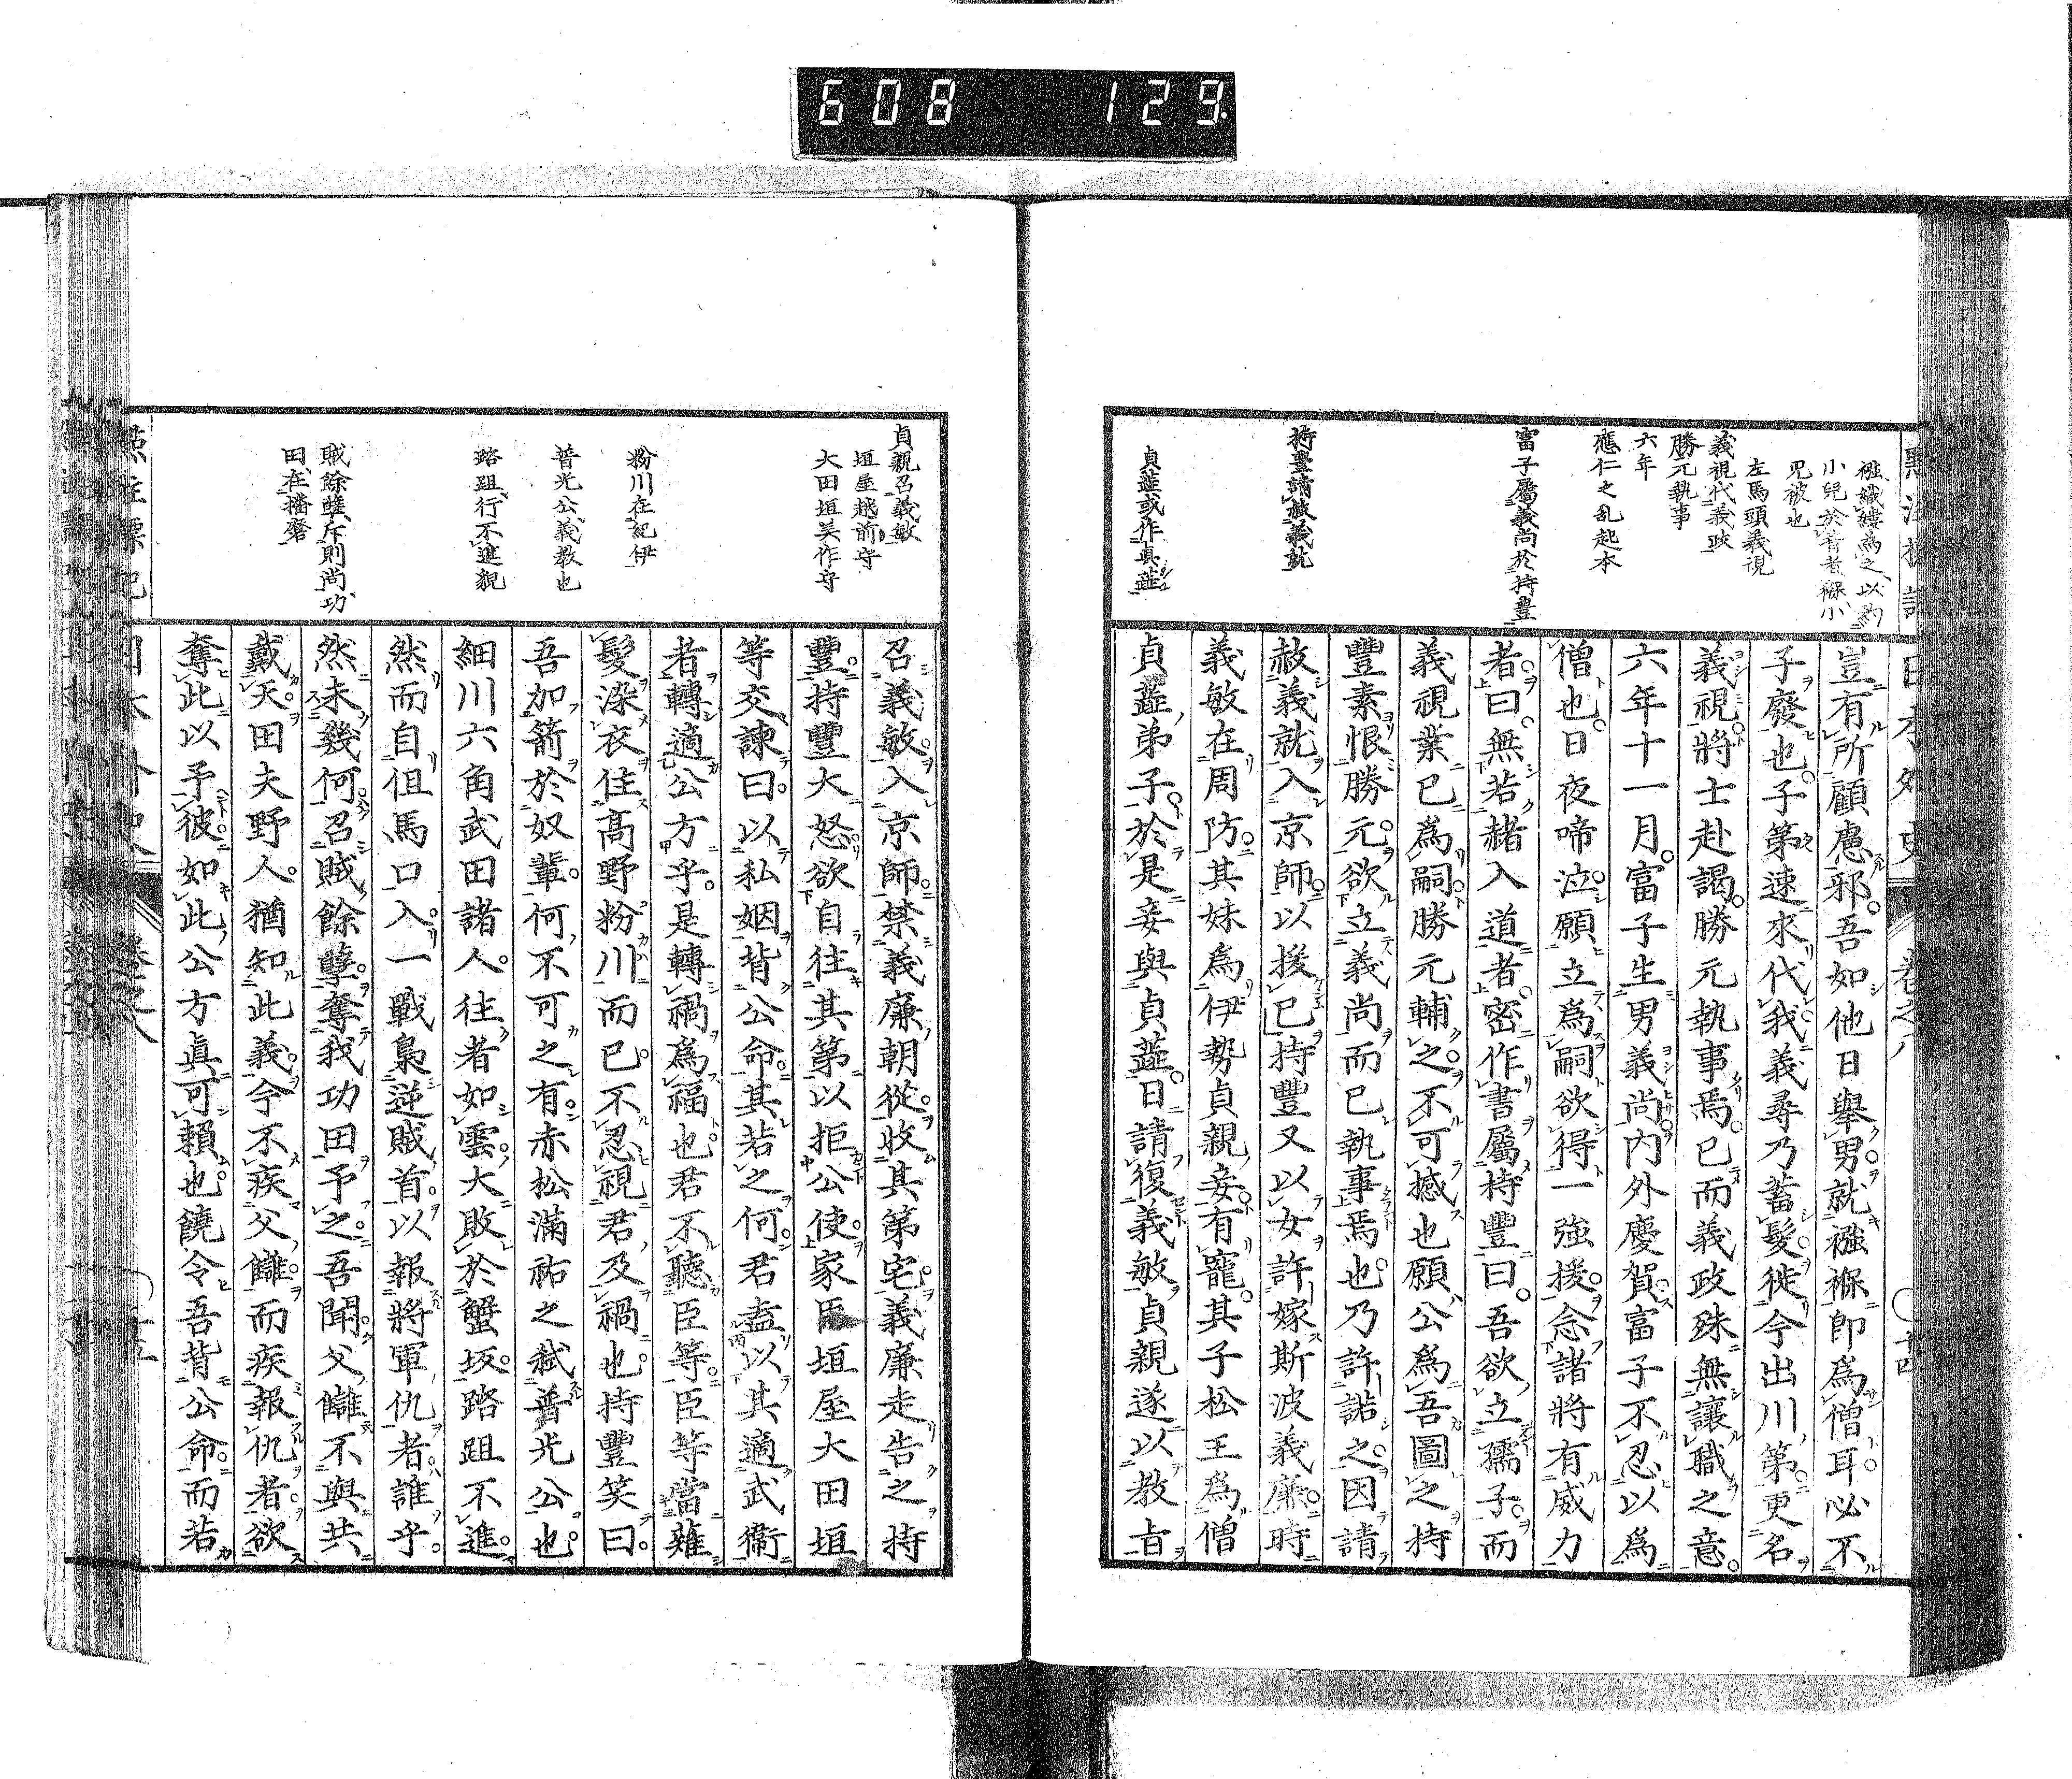 608 129
日本外史 卷之八 十四
襁織縷爲之以約
小兒於背者褓小
兒被也
左馬頭義視
義視代義政
勝元執事
六年
應仁之乱起本
富子屬義尚於持豊
持豊請赦義就
貞蘂或作真蘂
豈有所顧慮邪吾如他日舉男就襁褓即爲僧耳必不
子廢也子第速來代我義尋乃蓄髮徙今出川第更名
義視將士赴謁勝元執事焉已而義政殊無讓職之意
六年十一月富子生男義尚内外慶賀富子不忍以爲
僧也日夜啼泣願立爲嗣欲得一強援念諸將有威力
者曰無若赭入道者密作書屬持豐曰吾欲立孺子而
義視業已爲嗣勝元輔之不可撼也願公爲吾圖之持
豐素恨勝元欲立義尚而已執事焉也乃許諾之因請
赦義就入京師以援已持豐又以女許嫁斯波義廉時
義敏在周防其妹爲伊勢貞親妾有寵其子松王爲僧
貞蘂弟子於是妾與貞蘂日請復義敏貞親遂以教旨
貞親召義敏
垣屋越前守
大田垣美作守
粉川在紀伊
普光公義教也
路跙行不進貌
賊餘孽斥則尚功
田在播磨
召義敏入京師禁義廉朝從收其第宅義廉走告之持
豐持豐大怒欲自往其第以拒公使家臣垣屋大田垣
等交諫曰以私姻背公命其若之何君盍以其適武衞
者轉適公方乎是轉禍爲福也君不聽臣等臣等當薙
髮染衣住高野粉川而已不忍視君及禍也持豐笑曰
吾加箭於奴輩何不可之有赤松滿祐之弑普光公也
細川六角武田諸人往者如雲大敗於蟹坂路跙不進
然而自但馬口入一戰梟逆賊首以報將軍仇者誰乎
然未幾何召賊餘孽奪我功田予之吾聞父讎不與共
戴天田夫野人猶知此義今不疾父讎而疾報仇者欲
奪此以予彼如此公方眞可賴也饒令吾背公命而若